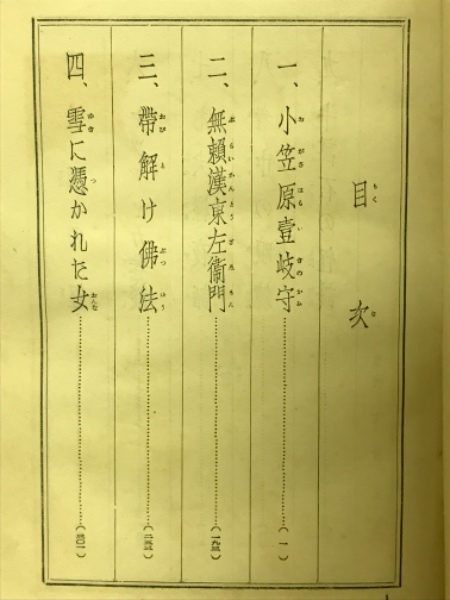 目次
一、小笠原壹岐守……(一)
二、無頼漢京左衞門……(一九三)
三、帶解け佛法……(二五三)
四、雪に憑かれた女……(三〇一)